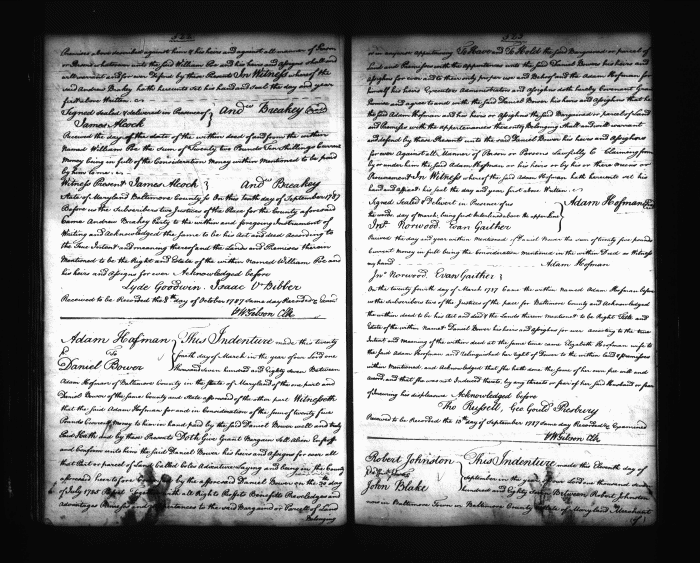 322
Premises above described against him & his heirs and against all manner of Person
or Persons whatsoever unto the said William Poe and his heirs and Assigns shall and
will warrant and forever Defend by these Presents In Witness whereof the
said Andrew Breakey hath hereunto set his hand and Seal the day and year
first above Written
Signed Sealed & delivered in Presence of And.w Breakey
James Alcock
Received the day of the date of the within deed of and from the within
Named William Poe the sum of Twenty two Pounds Ten Shillings Current
Money being in full of the Consideration Money within Mentioned to be paid
by him to me
Witness Present James Alcock And.w Breakey
State of Maryland Baltimore County ss On this tenth day of September 1787
Before us the Subscribers two Justices of the Peace for the County aforesaid
Came Andrew Breakey Party to the within and foregoing Instrument of
Writing and Acknowledged the same to be his Act and deed According to
the True Intent and meaning thereof and the Lands and Premises therein
Mentioned to be the Right and Estate of the within Named William Poe and
his heirs and Assigns for ever Acknowledged before
Lyde Goodwin. Isaac V Bibber
Received to be Recorded the 8th day of October 1787 same day Recorded &
Wm Gibson Clk
Adam Hofman This Indenture made this twenty
To fourth day of March in the year of our Lord one
Daniel Bower thousand seven hundred and Eighty seven Between
Adam Hofman of Baltimore County in the State of Maryland of the one part and
Daniel Bower of the same County and State aforesaid of the other part Witnesseth
that the said Adam Hofman for and in Consideration of the sum of twenty five
Pounds Current Money to him in hand paid by the said Daniel Bower well and truly
Paid Hath and by these Presents Doth Give Grant Bargain Sell Alien Enfeoff
and Confirm unto him the said Daniel Bower his heirs and Assigns for ever all
that Part or parcel of Land Called Laying and being in the County
aforesaid by the aforesaid Daniel Bower on the day
of July all Right Profits Benefits Priviledges and
Advantages to the said Bargained or Parcell of Land
Belonging
323
or in anywise appertaining To Have and To Hold the said Bargained or parcel of
Land and Premises with the appurtenances unto the said Daniel Bower his heirs and
Assigns for ever and to their only proper use and Behoof and the Adam Hofman for
himself his heirs Executors Administrators and Assigns doth hereby Covenant Grant
Promise and agree to and with the said Daniel Bower his heirs and Assigns that he
the said Adam Hofman and his heirs or Assigns the said Bargained or parcel of Land
and Premises with the appurtenances thereunto Belonging Shall and will warrant
and defend by these Presents unto the said Daniel Bower his heirs and Assigns
for ever Against all Manner of Person or Persons lawfully Claiming from
by or under him the said Adam Hofman or his heirs or by his or there means or
Procurement In Witness whereof the said Adam Hofman hath hereunto set his
hand and affixed his seal the day and year first above Written
Signed Sealed & Deliver'd in Presence of us Adam Hofman
Jn.o Norwood. Evan Gaither
Received the day and year within Mentioned the sum of twenty five pounds
Current Money in full being the Consideration Mentioned in the within Deed as Witness
my hand Adam Hofman
Jn.o Norwood. Evan Gaither
On the twenty fourth day of March 1787 Came the within Named Adam Hofman before
us the subscribers two of the Justices of the peace for Baltimore County and Acknowledged
the within deed to be his Act and deed & the lands therein Mentioned to be the Right Title and
Estate of the within Named Daniel Bower his heirs and Assigns for ever according to the true
Intent and Meaning of the within deed at the same time came Elizabeth Hofman wife to the
said Adam Hofman and relinquished her right of Dower to the within land & premises
within Mentioned and Acknowledged that she hath done the same of her own free will and
accord, and that she was not Induced thereto, by any threats or fear of her said Husband or fear
of Incurring his displeasure Acknowledged before
Tho Russell, Geo Gould Presbury
Received to be Recorded the 13th day of September 1787 same day Recorded & Examined
Wm Gibson Clk
Robert Johnston This Indenture made this Eleventh day of
September in the year of our Lord one thousand seven
John Blake hundred and Eighty seven Between Robert Johnston
now in Baltimore Town in Baltimore County State of Maryland Merchant
of